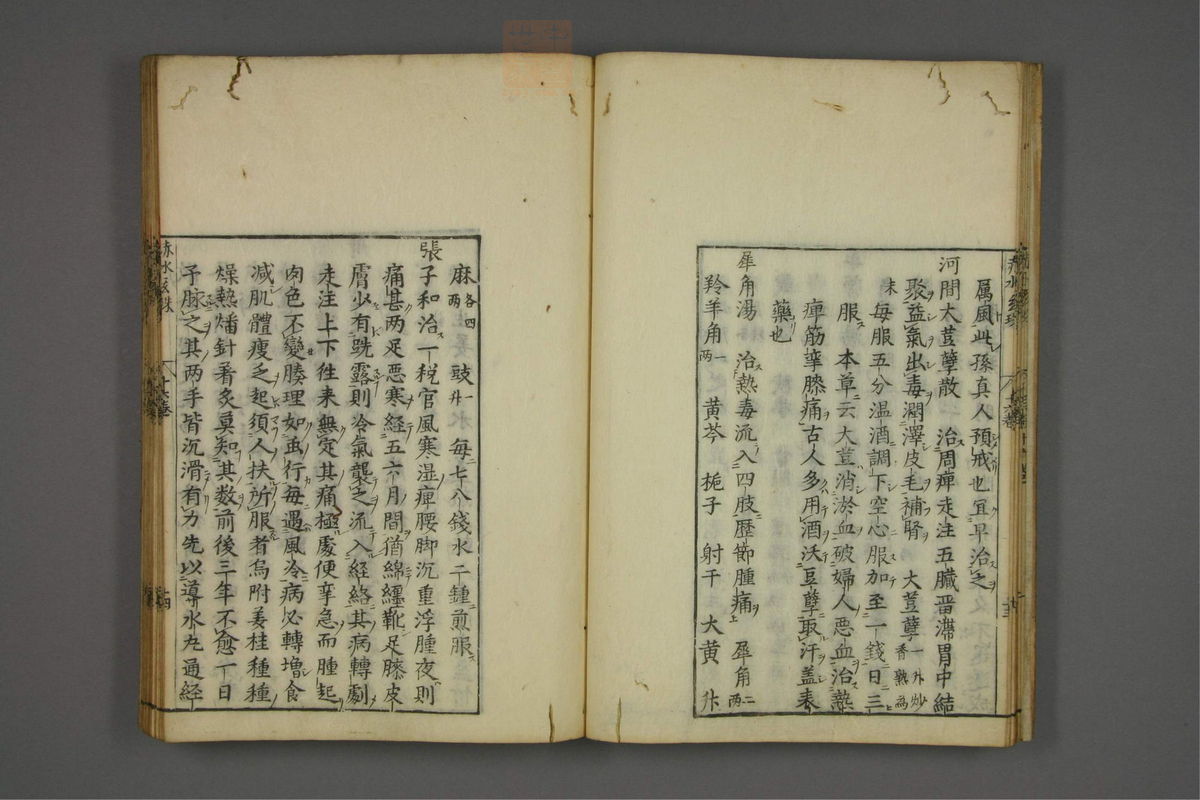 厲風此孫真人預戒也宜早治之
河間大荳孽散　治周痺走注五臟㽞滯胃中結
聚益氣出毒潤澤皮毛補腎　大荳孽一升炒香熟為
末　每服五分温酒調下空心服加至一錢日三
服　本草云大荳消淤血破婦人惡血治熱
痺筋攣膝痛古人多用酒沃豆孽取汗盖表
藥也
犀角湯　治熱毒流入四肢歷節腫痛　犀角二兩
羚羊角一兩　黃芩　梔子　射干　大黃　升
麻各四兩　豉一升　每七八錢水二鍾煎服
張子和治一税官風寒湿痺腰脚沉重浮腫夜則
痛甚两足惡寒経五六月間猶綿纒靴足膝皮
膚少有跣露則冷氣襲之流入経絡其病轉劇
走注上下徃来無定其痛極處便攣急而腫起
肉色不變腠理如䖝行每遇風冷病必轉增食
减肌體瘦乏起須人扶所服者烏附姜桂種種
燥熱燔針著炙莫知其数前後三年不愈一日
予脉之其两手皆沉滑有力先以導水丸通経